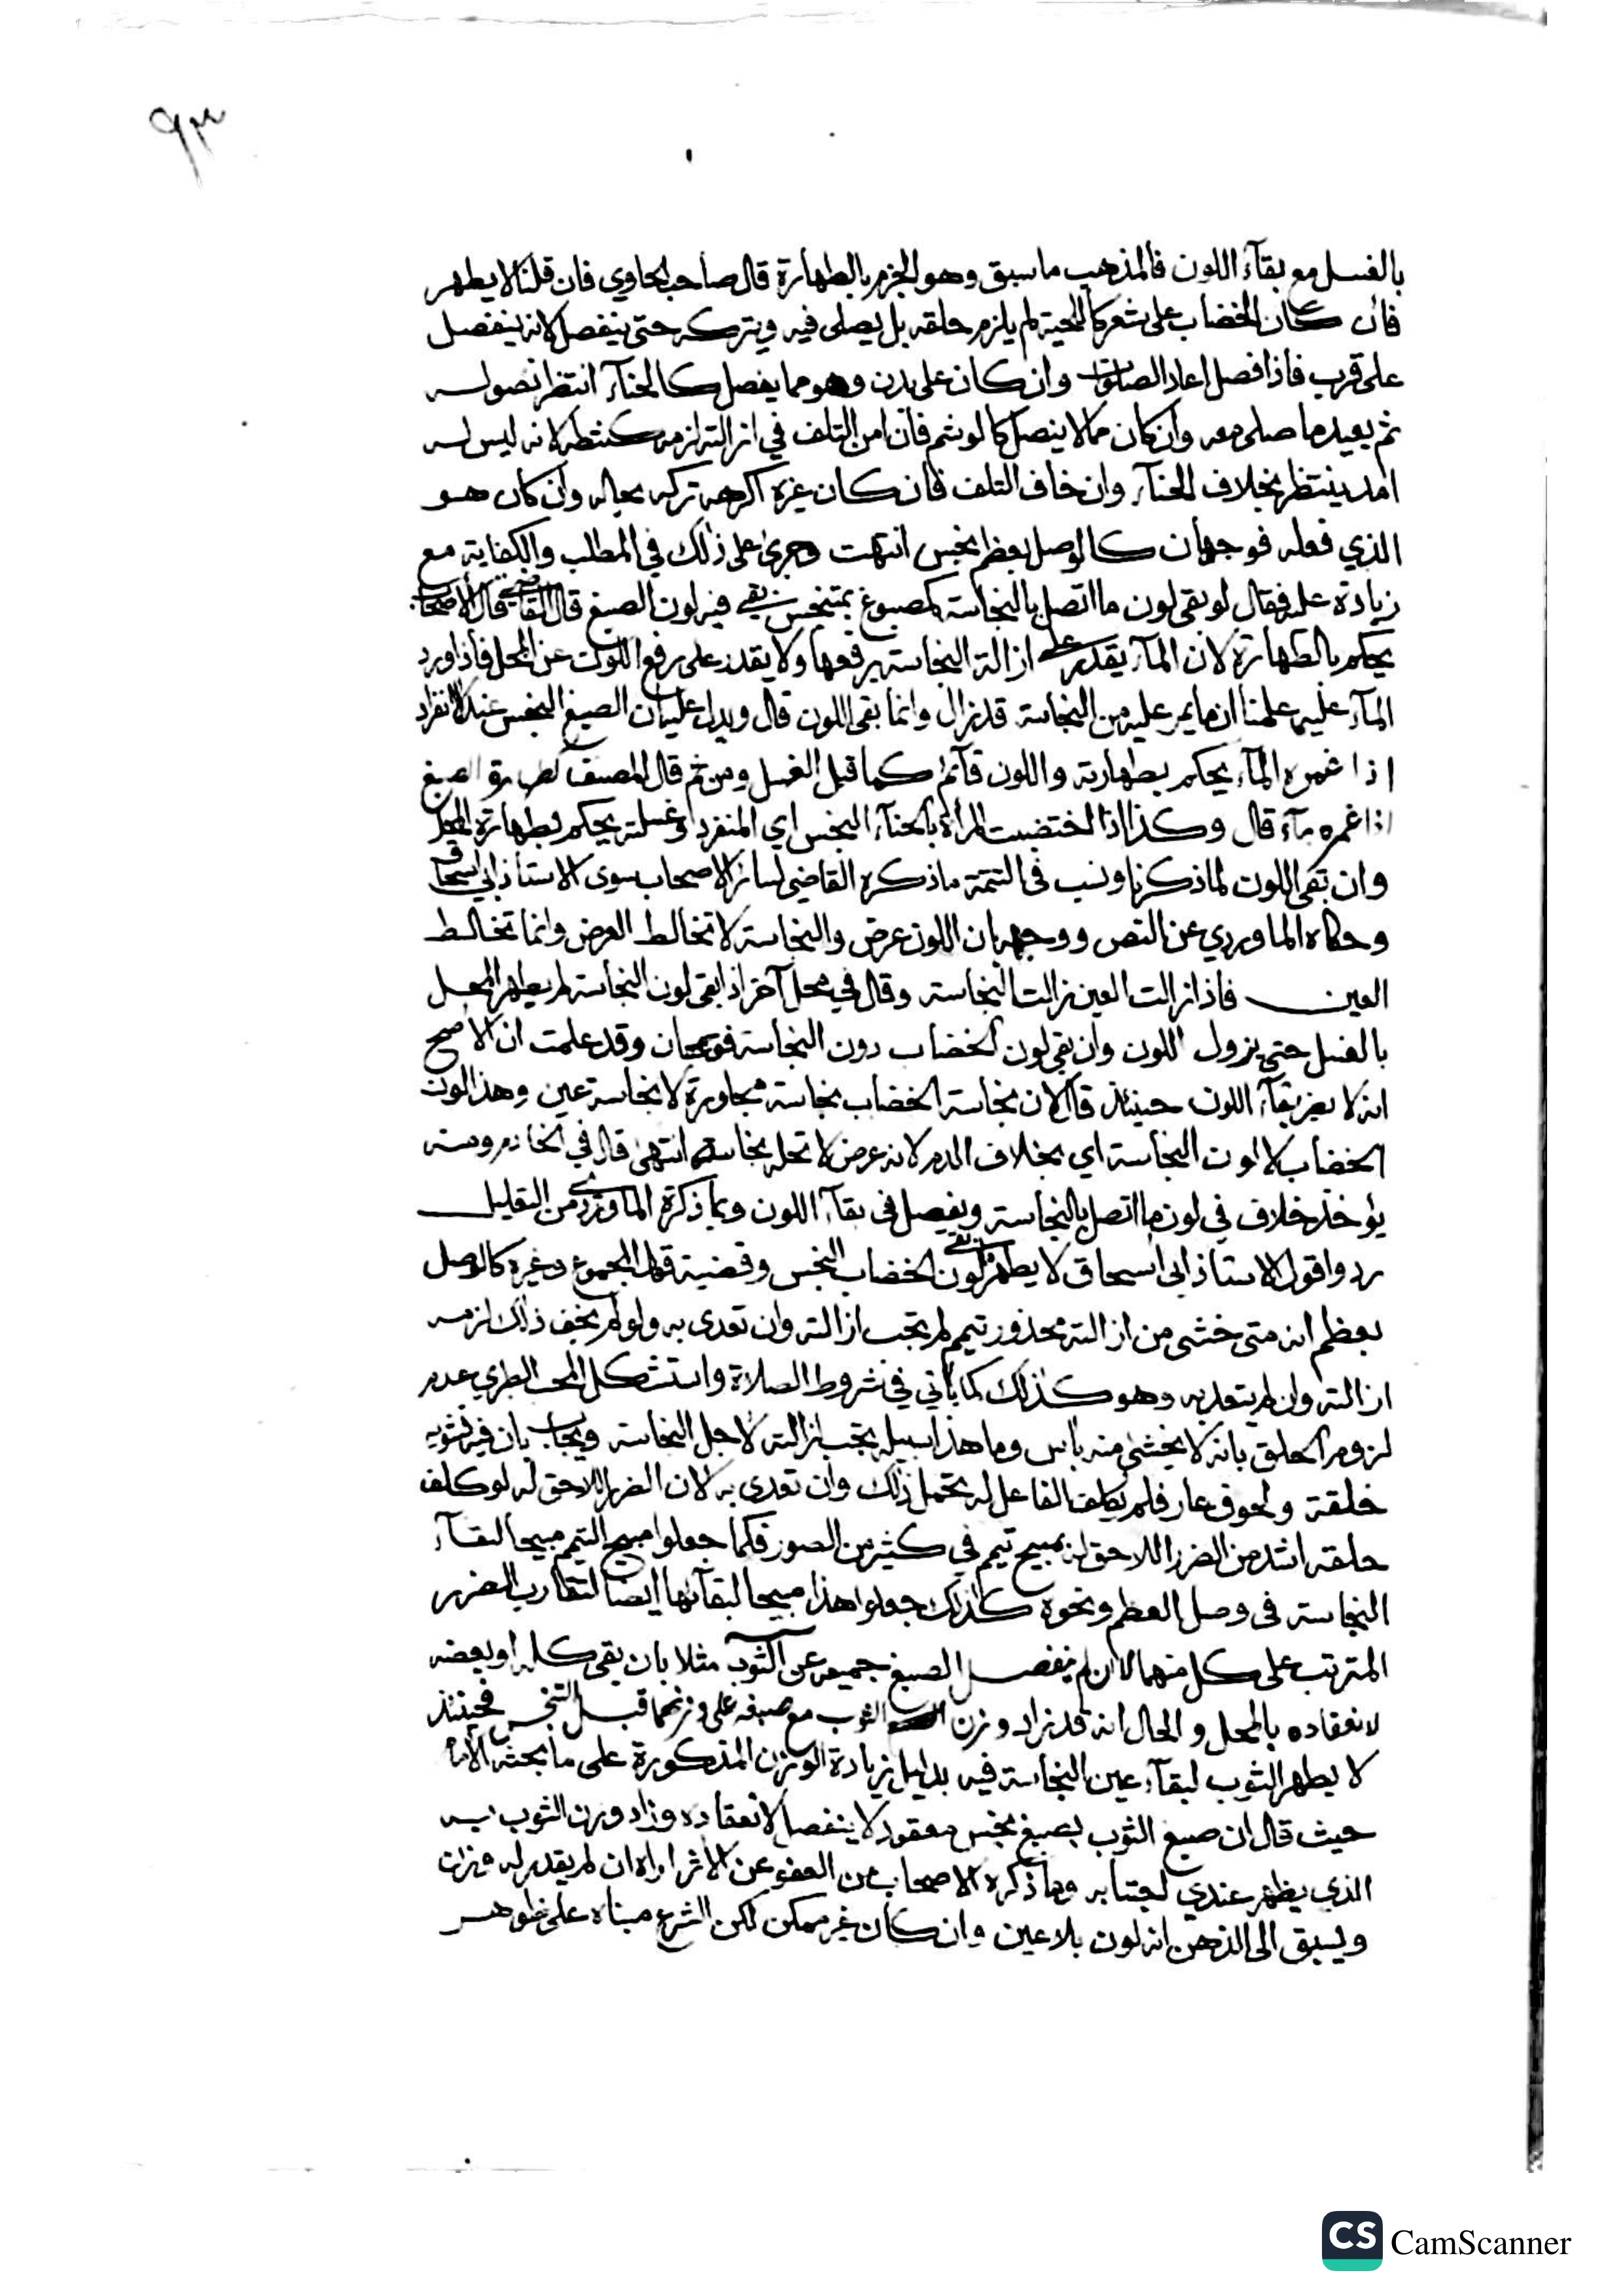 ٩٣
بالغسل مع بقآء اللون فالمذهب ما سبق وهو الجزم بالطهارة قال صاحب الحاوي فان قلنا لا يطهر
فان كان الخضاب على شعر كاللحية لم يلزم حلقه بل يصلى فيه ويتركه حتى ينفصل لانه ينفصل
على قرب فاذا فصل اعاد الصلوات وان كان على بدن وهو مما يفصل كالحنآء انتظر نصوله
ثم يعيد ما صلى معه وان كان مما لا ينصل كالوشم فان امن التلف في ازالته لزمه كشطه لانه ليس له
امد ينتظر بخلاف الحنآء وان خاف التلف فان كان غيره اكرهه تركه بحاله وان كان هو
الذي فعله فوجهان كالوصل بعظم نجس انتهت وجرى على ذلك في المطلب والكفاية مع
زيادة عليه فقال لو بقى لون ما اتصل بالنجاسة كمصبوغ بمتنجس بقي فيه لون الصبغ قال القاضي قال الاصحاب
يحكم بالطهارة لان المآء يقدر على ازالة النجاسة برفعها ولا يقدر على رفع اللون عن المحل فاذا ورد
المآء عليه علمنا ان ما يمر عليه من النجاسة قد زال وانما بقى اللون قال ويدل عليه ان الصبغ النجس عند الانفراد
اذا غمره المآء يحكم بطهارته واللون قآئم كما قبل الغسل ومن ثم قال المصنف الصبغ
اذا غمره مآء قال وكذا اذا اختضبت المرأة بالحنآء النجس اي المنفرد وغسلته يحكم بطهارة المحل
وان بقى اللون لما ذكرنا ونسب فى التتمة ما ذكره القاضي لسائر الاصحاب سوى الاستاذ ابي اسحاق
وحكاه الماوردي عن النص ووجهه بان اللون عرض والنجاسة لا تخالط العرض وانما تخالط
العين فاذا زالت العين زالت النجاسة وقال في محل آخر اذا بقى لون النجاسة لم يطهر المحل
بالغسل حتى يزول اللون وان بقى لون الخضاب دون النجاسة فوجهان وقد علمت ان الاصح
انه لا يضر بقآء اللون حينئذ قال لان نجاسة الخضاب نجاسة مجاورة لا نجاسة عين وهذا لون
الخضاب لا لون النجاسة اي بخلاف الدم لانه عرض لا تحله نجاسة انتهى قال في الخادم ومنه
يؤخذ خلاف في لون ما اتصل بالنجاسة ويفصل فى بقآء اللون وبما ذكره الماوردي من التعليل
ردوا قول الاستاذ ابي اسحاق لا يطهر لون الخضاب النجس وقضية قول المجموع وغيره كالوصل
بعظم انه متى خشى من ازالته محذور تيمم لم تجب ازالته وان تعدى به ولو لم يخف ذلك لزمه
ازالته وان لم يتعد به وهو كذلك كما يأتي في شروط الصلاة واستشكل المحب الطبري عدم
لزوم الحلق بانه لا يخشى منه بأس وما هذا سبيله تجب ازالته لاجل النجاسة ويجاب بان فيه تشويه
خلقة ولحوق عار فلم يكلف الفاعل له تحمل ذلك وان تعدى به لان الضرر اللاحق له لو كلف
حلقه اشد من الضرر اللاحق له بمبيح تيمم في كثير من الصور فكما جعلوا مبيح التيمم مبيحا لبقآء
النجاسة فى وصل العظم ونحوه كذلك جعلوا هذا مبيحا لبقآئها ايضا لتقارب الضرر
المترتب على كل منهما الا ان لم ينفصل الصبغ جميعه عن الثوب مثلا بان بقى كله او بعضه
لانعقاده بالمحل والحال انه قد زاد وزن الثوب مع صبغه على وزنهما قبل التنجس فحينئذ
لا يطهر الثوب لبقآء عين النجاسة فيه بدليل زيادة الوزن المذكورة على ما بحثه الامام
حيث قال ان صبغ الثوب بصبغ نجس معقود لا ينفصل لانعقاده وزاد وزن الثوب به
الذي يظهر عندي اجتنابه وما ذكره الاصحاب من العفو عن الاثر اراه ان لم يقدر له وزن
ويسبق الى الذهن انه لون بلا عين وان كان غير ممكن لكن الشرع مبناه على ظواهر
CS CamScanner